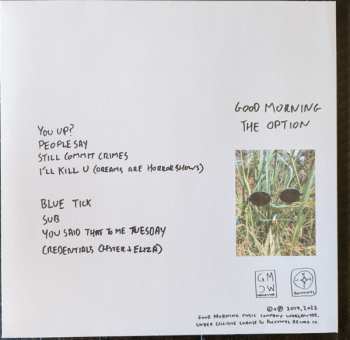 GOOD MORNING
THE OPTION
YOU UP?
PEOPLE SAY
STILL COMMIT CRIMES
I'LL KILL U (DREAMS ARE HORROR SHOWS)
BLUE TICK
SUB
YOU SAID THAT TO ME TUESDAY
CREDENTIALS
GM
2019, 2022
GOOD MORNING MUSIC COMPANY WORLDWIDE,
UNDER EXCLUSIVE LICENSE TO POLYVINYL RECORD CO.